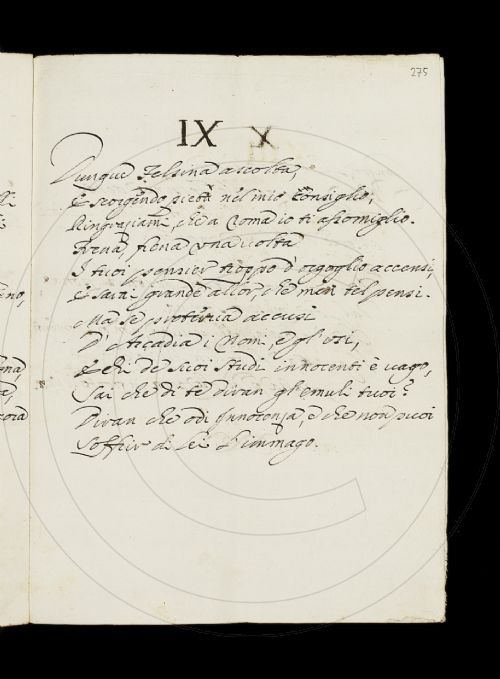 275
IX X
Dunque Felsina ascolta,
E scorgendo pietà nel mio consiglio,
Ringraziami, che a Roma io ti assomiglio.
Frena, frena una volta
I tuoi pensier troppo d'orgoglio accensi,
E sarai grande allor, che men tel pensi.
Ma se protervia accusi
D'Arcadia i Nomi, e gl'usi,
E chi de suoi studi innocenti è vago,
Sai che di te diran gl'emuli tuoi?
Diran che odi Innocenza, e che non puoi
Soffrir di Lei l'immago.